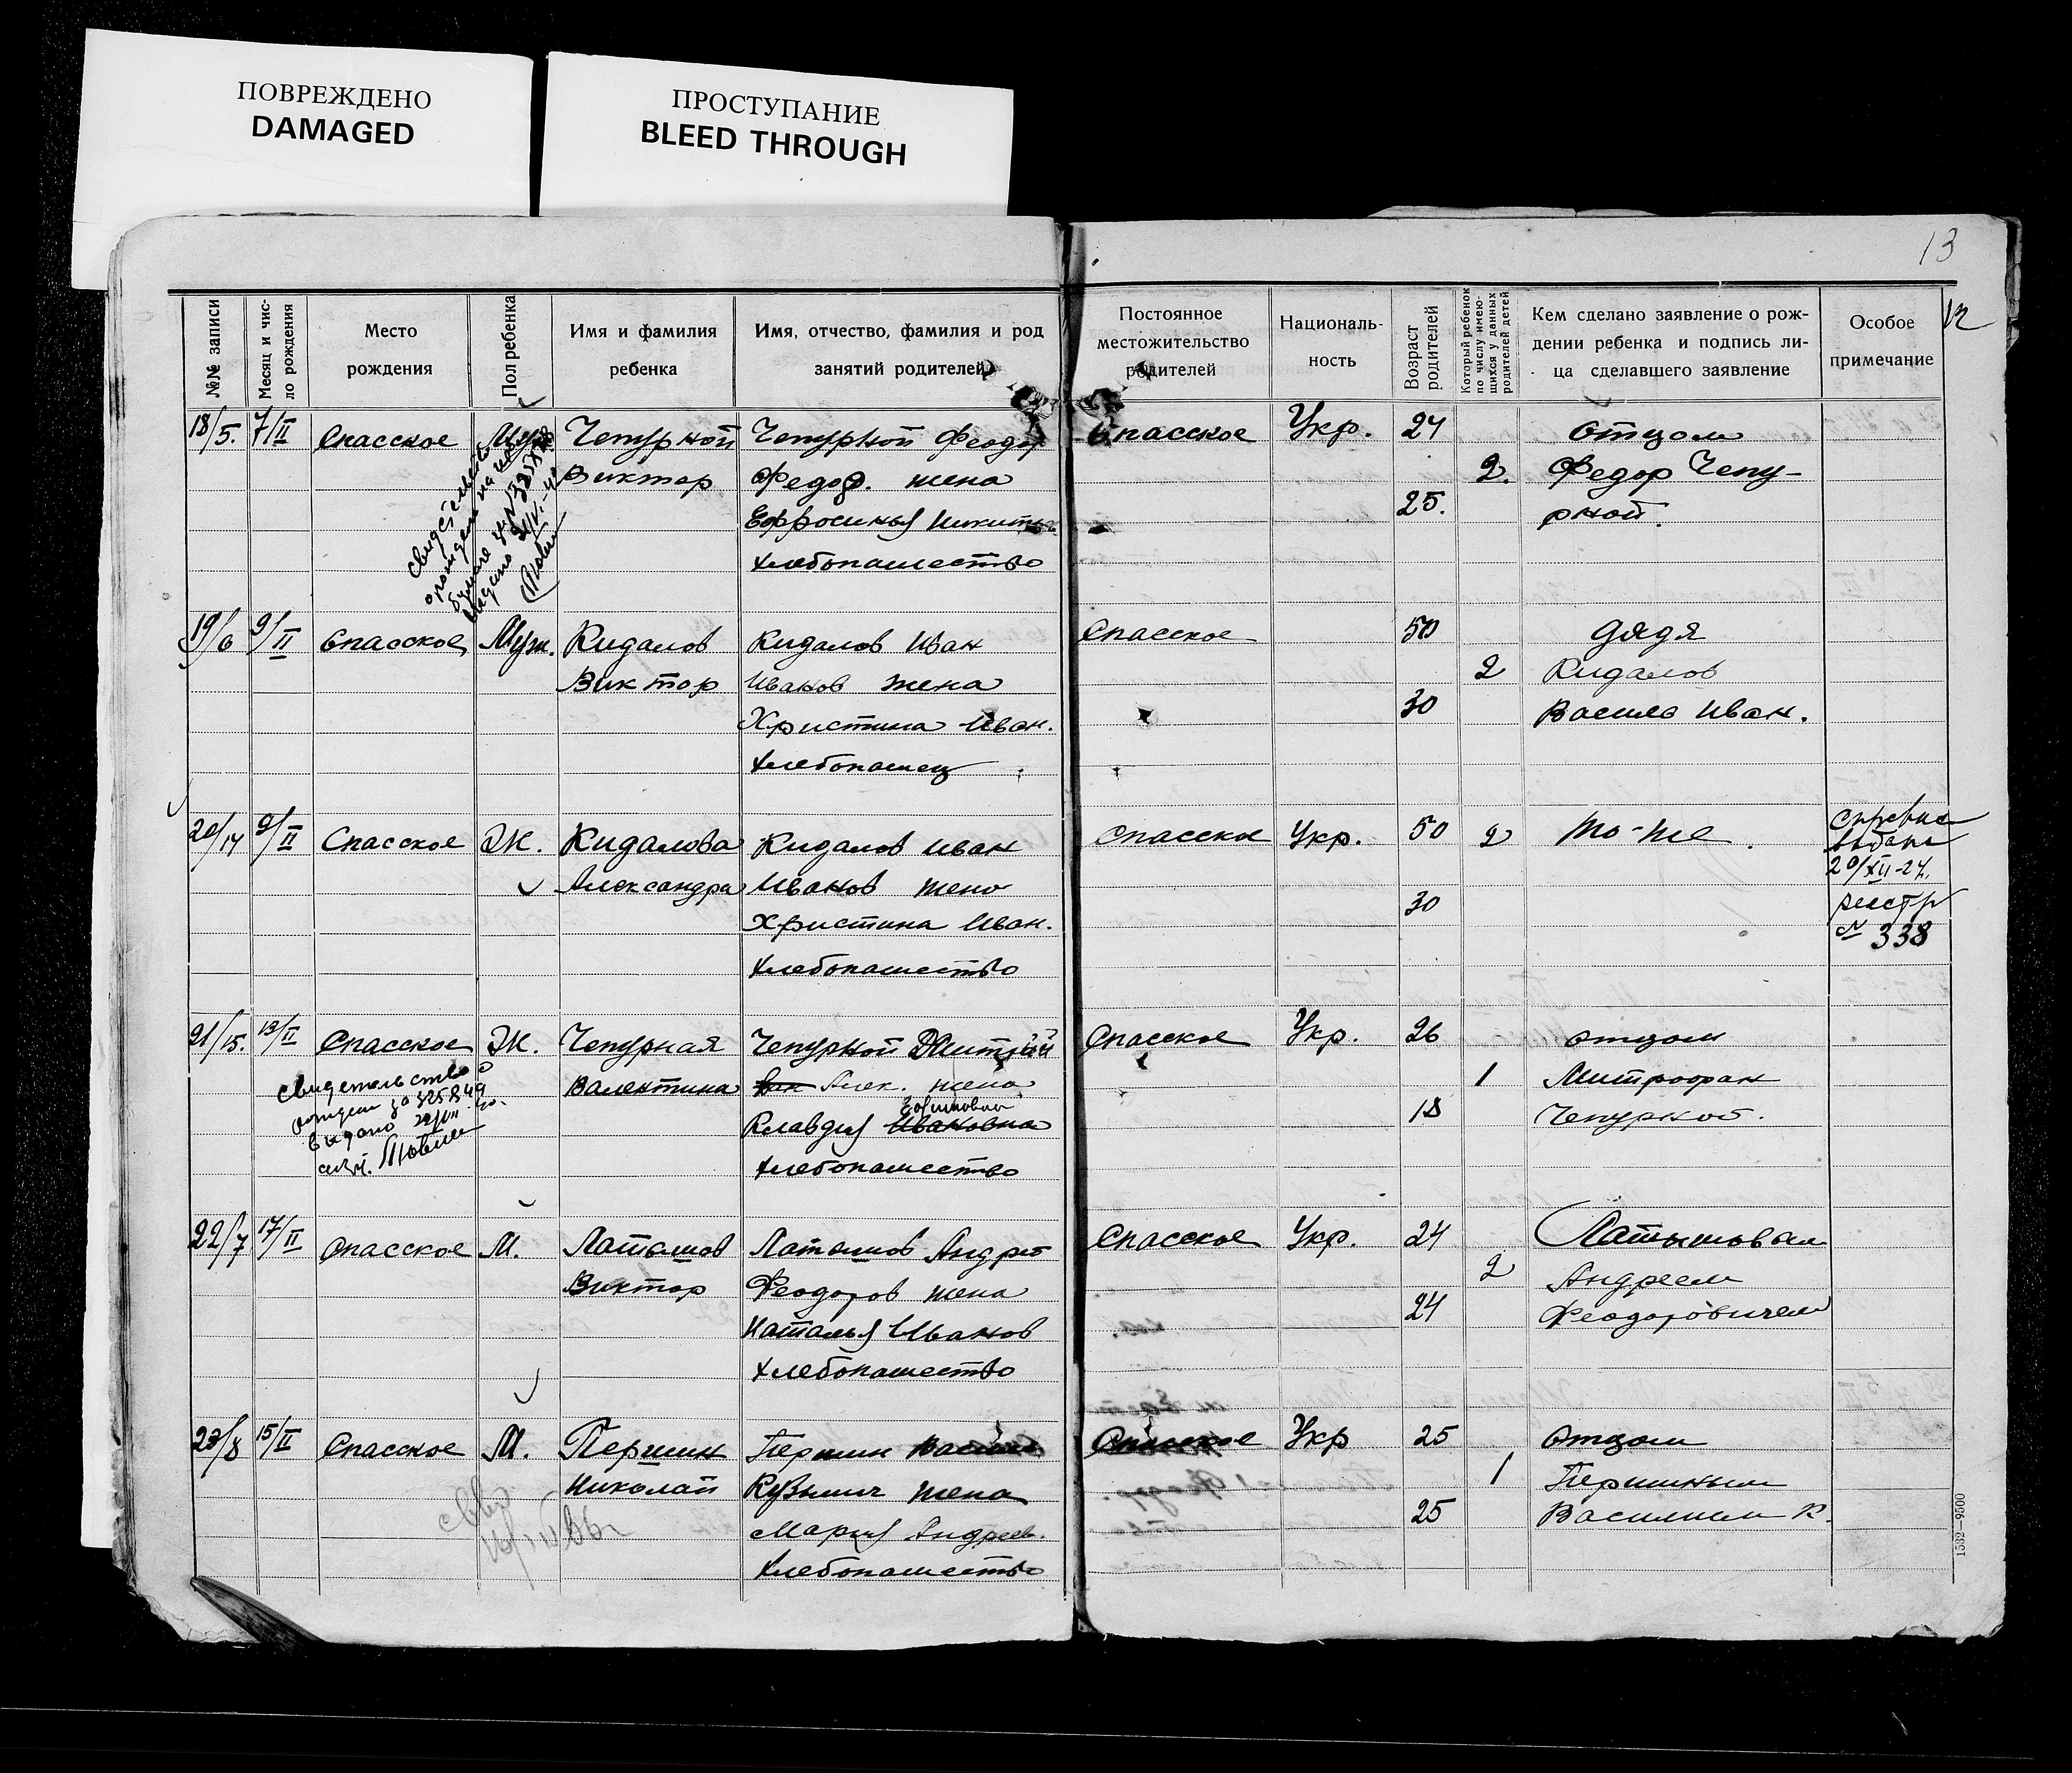 ПОВРЕЖДЕНО
DAMAGED
ПРОСТУПАНИЕ
BLEED THROUGH
13
12
№№ записи
Месяц и чис-
ло рождения
Место
рождения
Пол ребенка
Имя и фамилия
ребенка
Имя, отчество, фамилия и род
занятий родителей
Постоянное
местожительство
родителей
Националь-
ность
Возраст
родителей
Который ребенок
по числу имею-
щихся у данных
родителей детей
Кем сделано заявление о рож-
дении ребенка и подпись ли-
ца сделавшего заявление
Особое
примечание
18/5. 7/II Спасское Муж Чепурной Чепурной Феодор Спасское Укр. 24 отцом
Виктор Федор. жена 2. Федор Чепу-
Ефросинья Никит 25. рной.
хлебопашество
Свидетельство
о рождении на
выдано
19/6 9/II Спасское Муж. Кидалов Кидалов Иван Спасское 50 дядя
Виктор Иванов жена 2 Кидалов
Христина Иван. 30 Василь Иван.
хлебопашец
20/14 9/II Спасское Ж. Кидалова Кидалов Иван Спасское Укр. 50 2 то-же. справка
Александра Иванов жена выдана
20/XII-27.
Христина Иван. 30 реестр
№ 338
хлебопашество
21/15. 13/II Спасское Ж. Чепурная Чепурной Дмитрий Спасское Укр. 26 отцом
Валентина Алек. жена 1 Митрофан
Ефимовна
Клавдия Ивановна 18 Чепурной.
хлебопашество
Свидетельство о
рожден за 325849
выдано
22/7 17/II Спасское М. Латышов Латышов Андрей Спасское Укр. 24 Латышовым
Виктор Феодоров жена 2 Андреем
Наталья Иванов 24 Феодоровичем
хлебопашество
23/8 15/II Спасское М. Першин Першин Спасское Укр 25 отцом
Николай Кузьмич жена 1 Першиным
Мария Андреев. 25 Василием К.
хлебопашество
1532—9500